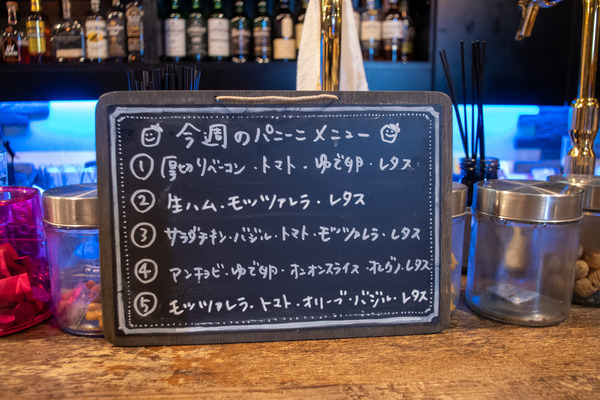 今週のパニーニメニュー
① 厚切りベーコン・トマト・ゆで卵・レタス
② 生ハム・モッツァレラ・レタス
③ サラダチキン・バジル・トマト・モッツァレラ・レタス
④ アンチョビ・ゆで卵・オニオンスライス・オレガノ・レタス
⑤ モッツァレラ・トマト・オリーブ・バジル・レタス